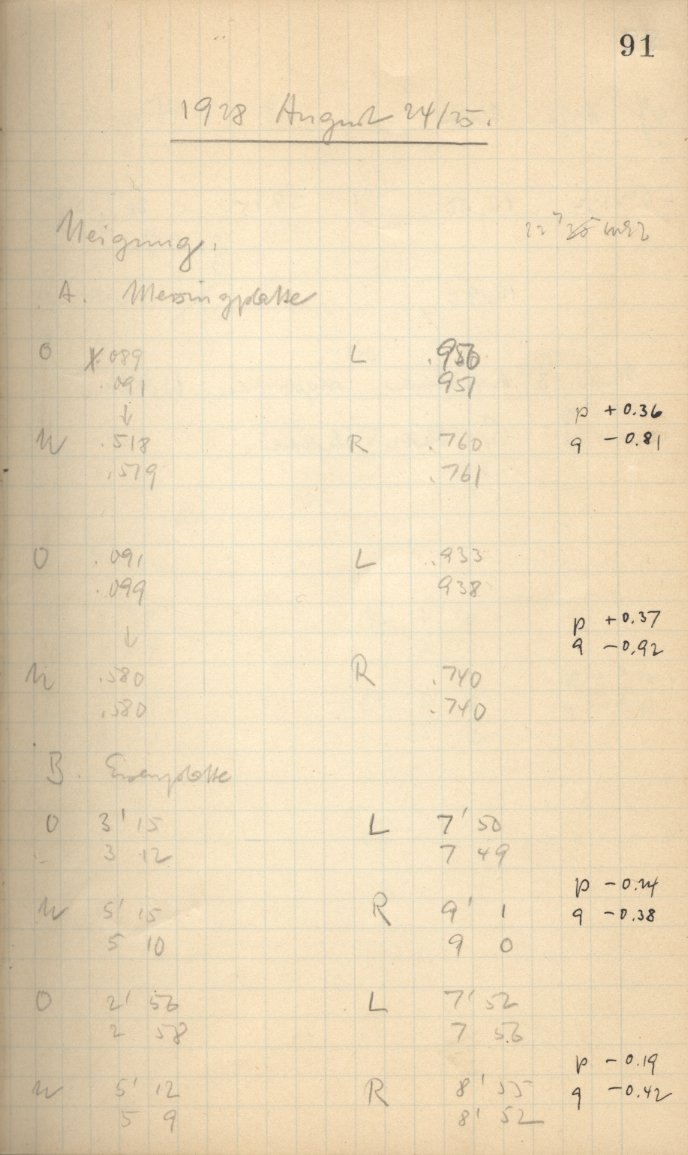 91
1928 August 24/25.
Neigung.
A. Messingplatte
O .089 L .950
.091 951
↓
p + 0.36
W .518 R .760 q - 0.81
.519 .761
O .091 L .933
.099 938
p + 0.37
↓ q - 0.92
W .580 R .740
.580 .740
B. Eisenplatte
O 3' 15 L 7' 50
3 12 7 49
p - 0.24
W 5' 15 R 9' 1 q - 0.38
5 10 9 0
O 2' 56 L 7' 52
2 58 7 56
p - 0.19
W 5' 12 R 8' 55 q - 0.42
5 9 8' 52